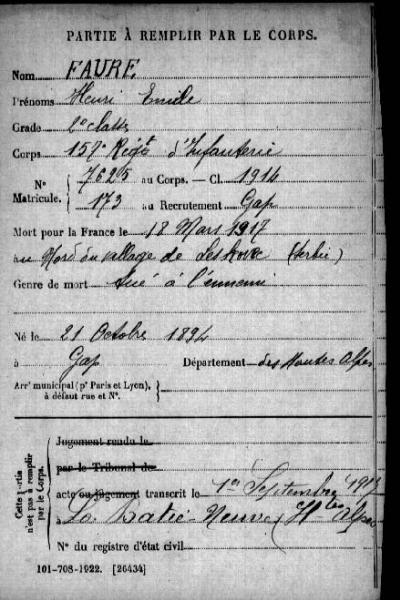 PARTIE À REMPLIR PAR LE CORPS.
Nom FAURE
Prénoms Henri Emile
Grade 2e classe
Corps 157e Régt d'Infanterie
N° Matricule. { 7625 au Corps. — Cl. 1914
173 au Recrutement Gap
Mort pour la France le 18 Mars 1917
au Nord du village de Leskovec (Serbie)
Genre de mort Tué à l'ennemi
Né le 21 Octobre 1894
à Gap Département des Hautes Alpes
Arrt municipal (pr Paris et Lyon),
à défaut rue et N°.
Cette partie n'est pas à remplir par le Corps.
Jugement rendu le
par le Tribunal de
acte ou jugement transcrit le 1er Septembre 1917
à La Batie-Neuve (Htes Alpes)
N° du registre d'état civil
101-708-1922. [26434]